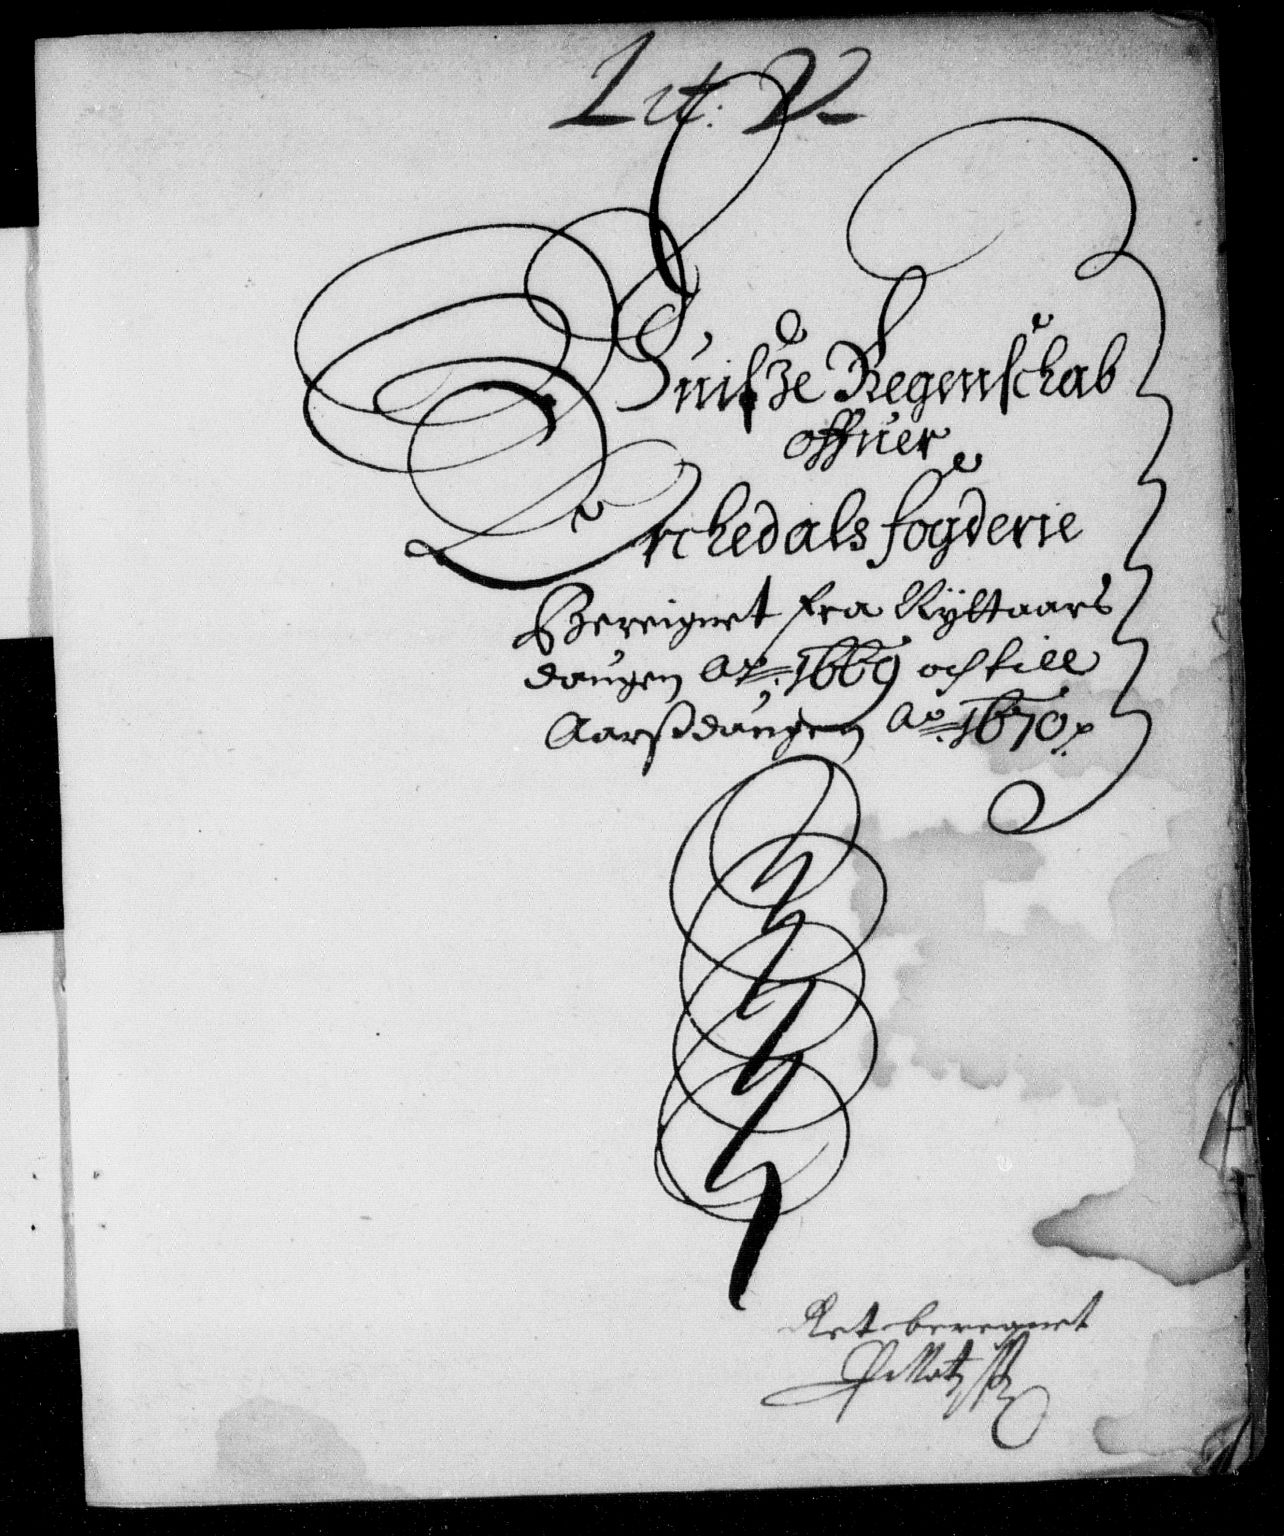 Lit: V
Quitze Regenschab
offuer
Orchedals fogderie
Bereignet fra Nÿttaars
daugen Ao: 1669 och till
Aarssdaugen Ao: 1670
Ret beregnet